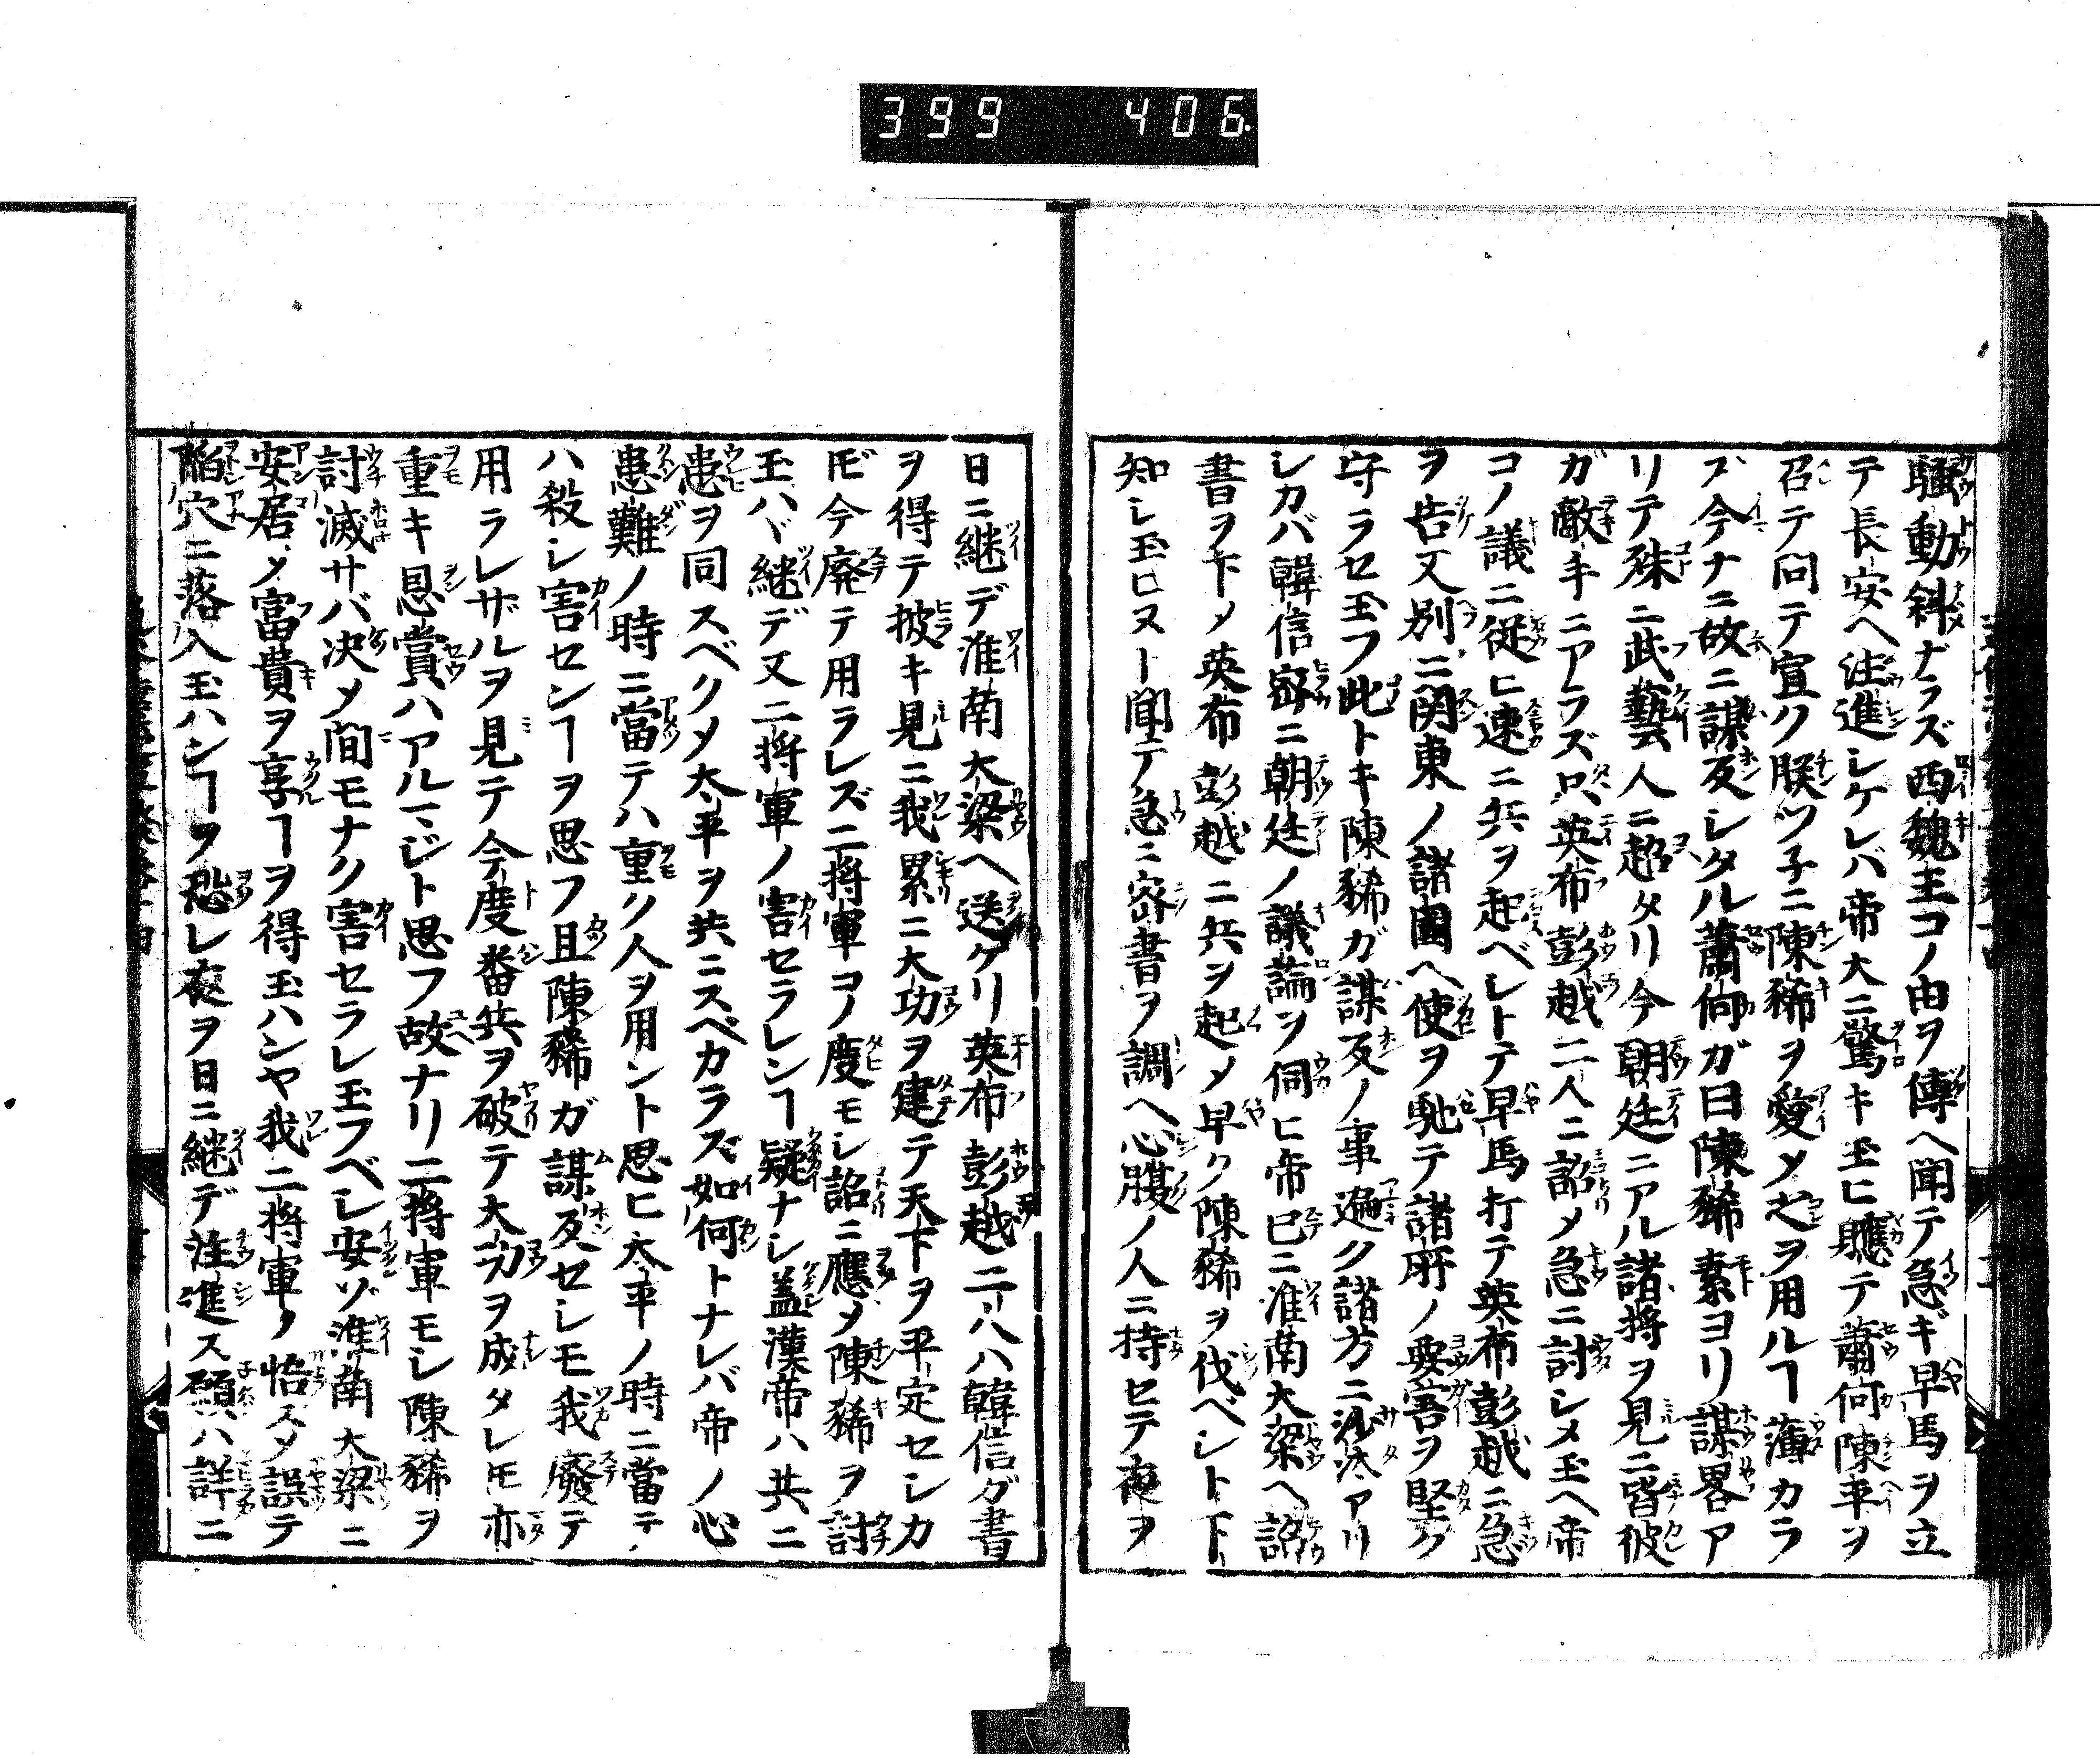 399 406.
騒動斜ナラズ西魏王コノ由ヲ傳ヘ聞テ急ギ早馬ヲ立
テ長安ヘ注進シケレバ帝大ニ驚キ玉ヒ軈テ蕭何陳平ヲ
召テ問テ宣ク朕ツ子ニ陳豨ヲ愛メ之ヲ用ルヿ薄カラ
ズ今ナニ故ニ謀反シタル蕭何ガ曰陳豨素ヨリ謀畧ア
リテ殊ニ武藝人ニ超タリ今朝廷ニアル諸将ヲ見ニ皆彼
ガ敵手ニアラズ只英布彭越二人ニ詔メ急ニ討シメ玉ヘ帝
コノ議ニ従ヒ速ニ兵ヲ起ベシトテ早馬打テ英布彭越ニ急
ヲ告又別ニ関東ノ諸國ヘ使ヲ馳テ諸所ノ要害ヲ堅ク
守ラセ玉フ此トキ陳豨ガ謀反ノ事遍ク諸方ニ沙汰アリ
シカバ韓信密ニ朝廷ノ議論ヲ伺ヒ帝已ニ淮南大梁ヘ詔
書ヲ下メ英布彭越ニ兵ヲ起メ早ク陳豨ヲ伐ベシト下
知シ玉ヒヌト聞テ急ニ密書ヲ調ヘ心腹ノ人ニ持セテ夜ヲ
日ニ継デ淮南大梁ヘ送ケリ英布彭越二人ハ韓信ガ書
ヲ得テ披キ見ニ我累ニ大功ヲ建テ天下ヲ平定セシカ
ドモ今廃テ用ラレズ二将軍コノ度モシ詔ニ應メ陳豨ヲ討
玉ハヾ継デ又二将軍ノ害セラレンヿ疑ナシ盖漢帝ハ共ニ
患ヲ同スベクメ太平ヲ共ニスベカラズ如何トナレバ帝ノ心
患難ノ時ニ當テハ重ク人ヲ用ント思ヒ太平ノ時ニ當テ
ハ殺シ害センヿヲ思フ且陳豨ガ謀反セシモ我廢テ
用ラレザルヲ見テ今度番兵ヲ破テ大功ヲ成タレ𪜈亦
重キ恩賞ハアルマジト思フ故ナリ二将軍モシ陳豨ヲ
討滅サバ决メ間モナク害セラレ玉フベシ安ゾ淮南大梁ニ
安居メ冨貴ヲ享ヿヲ得玉ハンヤ我二将軍ノ悟ズメ誤テ
陥穴ニ落入玉ハンヿヲ恐レ夜ヲ日ニ継デ注進ス願ハ詳ニ